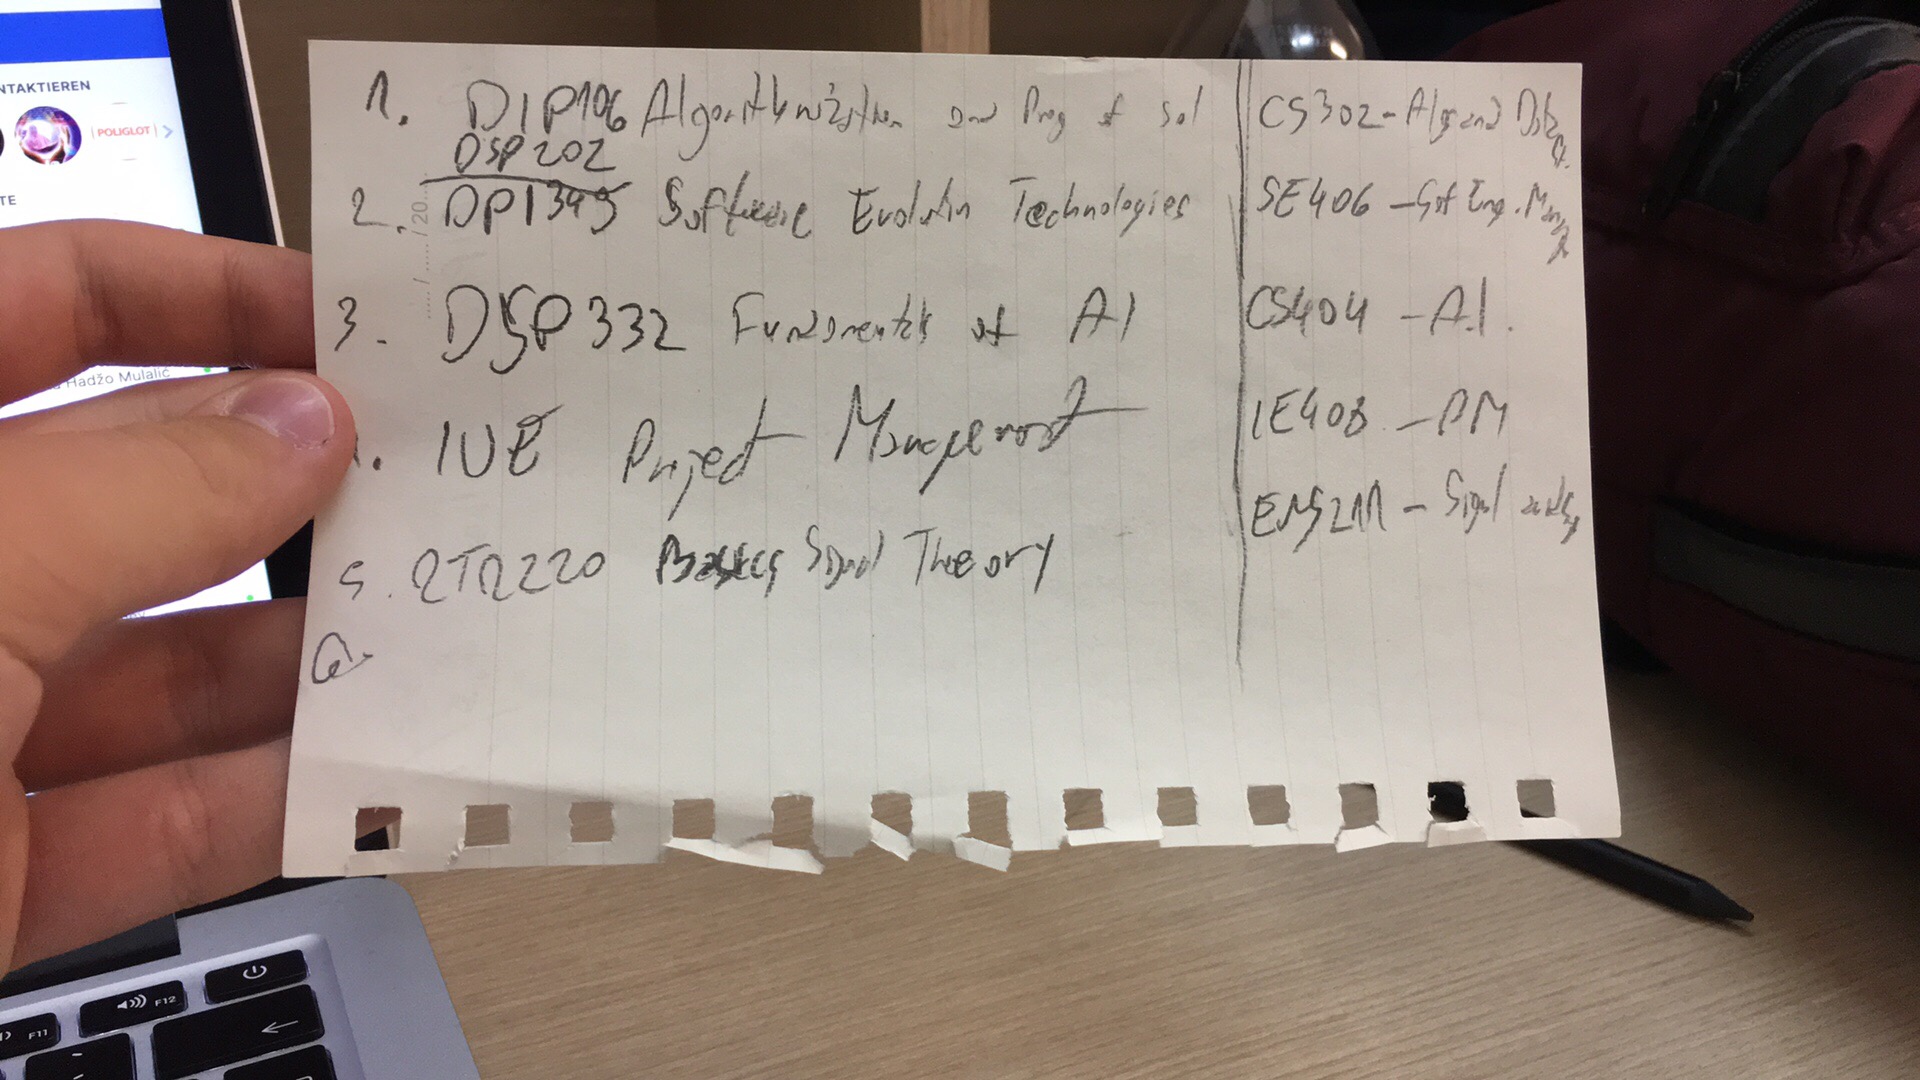 NTAKTIEREN
POLIGLOT
TE
Hadžo Mulalić
1. DIP106 Algorithmization and Prog of sol
DSP202
2. DPI345 Software Evolution Technologies
3. DSP332 Fundamentals of AI
. IUE Project Management
5. RTR220 Basics Signal Theory
6.
CS302 - Algs and
SE406 - Sof Eng. Mang
CS404 - A.I.
IE408 - PM
ENS211 - Signal
..... / ..... / 20.....
F11
F12